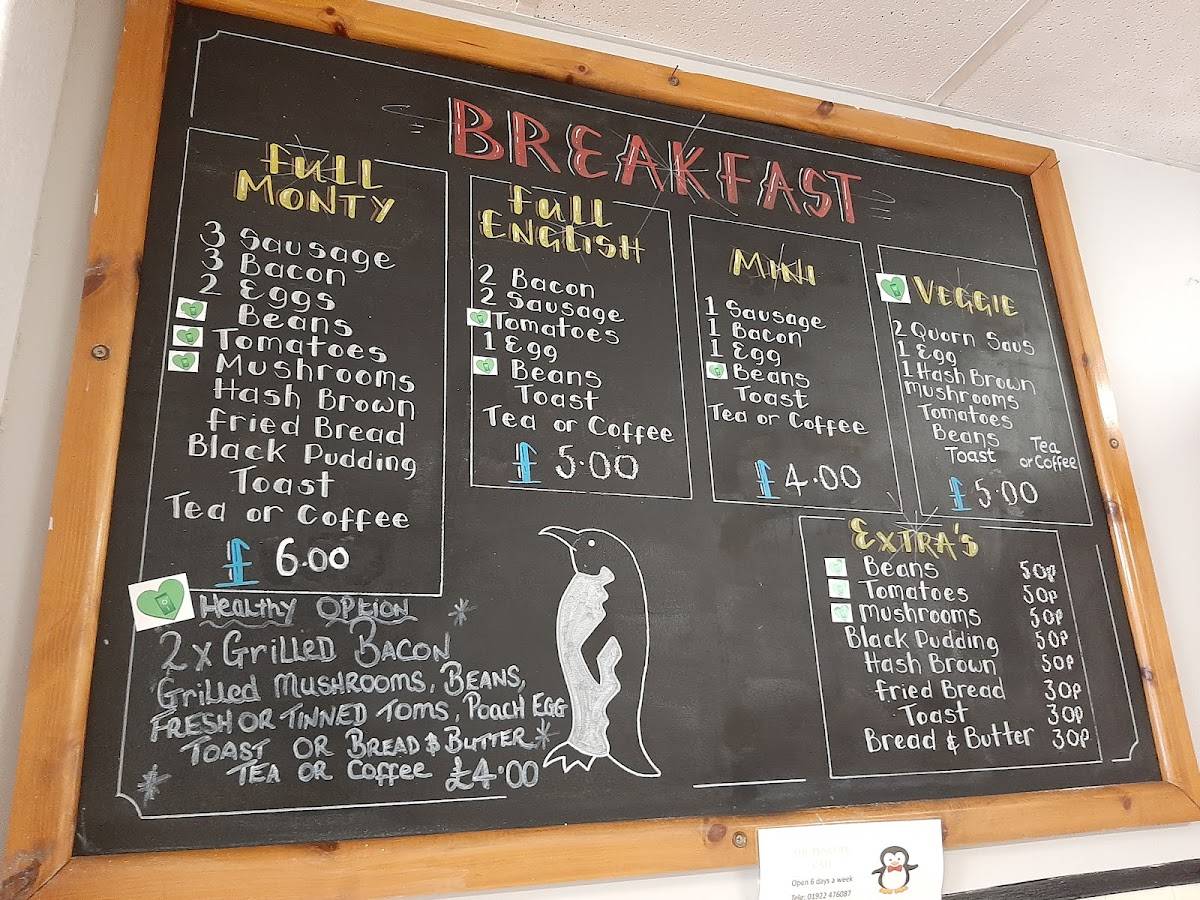 BREAKFAST
Full
MONTY
3 Sausage
3 Bacon
2 Eggs
Beans
Tomatoes
Mushrooms
Hash Brown
fried Bread
Black Pudding
Toast
Tea or Coffee
£ 6.00
full
ENGLISH
2 Bacon
2 Sausage
Tomatoes
1 Egg
Beans
Toast
Tea or Coffee
£ 5.00
MINI
1 Sausage
1 Bacon
1 Egg
Beans
Toast
Tea or Coffee
£ 4.00
VEGGIE
2 Quorn Saus
1 Egg
1 Hash Brown
mushrooms
Tomatoes
Beans
Toast
Tea
or Coffee
£ 5.00
EXTRA'S
Beans 50p
Tomatoes 50p
Mushrooms 50p
Black Pudding 50p
Hash Brown 50p
fried Bread 30p
Toast 30p
Bread & Butter 30p
Healthy OPtion
2 x GrilleD BACON
Grilled MUSHROOMS, BEANS,
FRESH OR TINNED TOMS, POACH EGG
TOAST OR BREAD & BUTTER
TEA OR Coffee £4.00
Open 6 days a week
Tele: 01922 476087